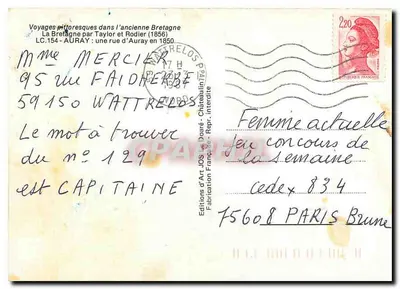 Voyages pittoresques dans l'ancienne Bretagne
La Bretagne par Taylor et Rodier (1856)
LC.154 - AURAY : une rue d'Auray en 1850
Mme MERCIER
95 rue FAIDHERBE
59150 WATTRELOS
Le mot à trouver
du n° 129
est CAPITAINE
WATTRELOS PAL
17 H
1987
Editions d'Art JOS Le Doaré - Châteaulin
Fabrication Française - Repr. interdite
2,20
Femme actuelle
Jeu concours de
la semaine
cedex 834
75608 PARIS Brune